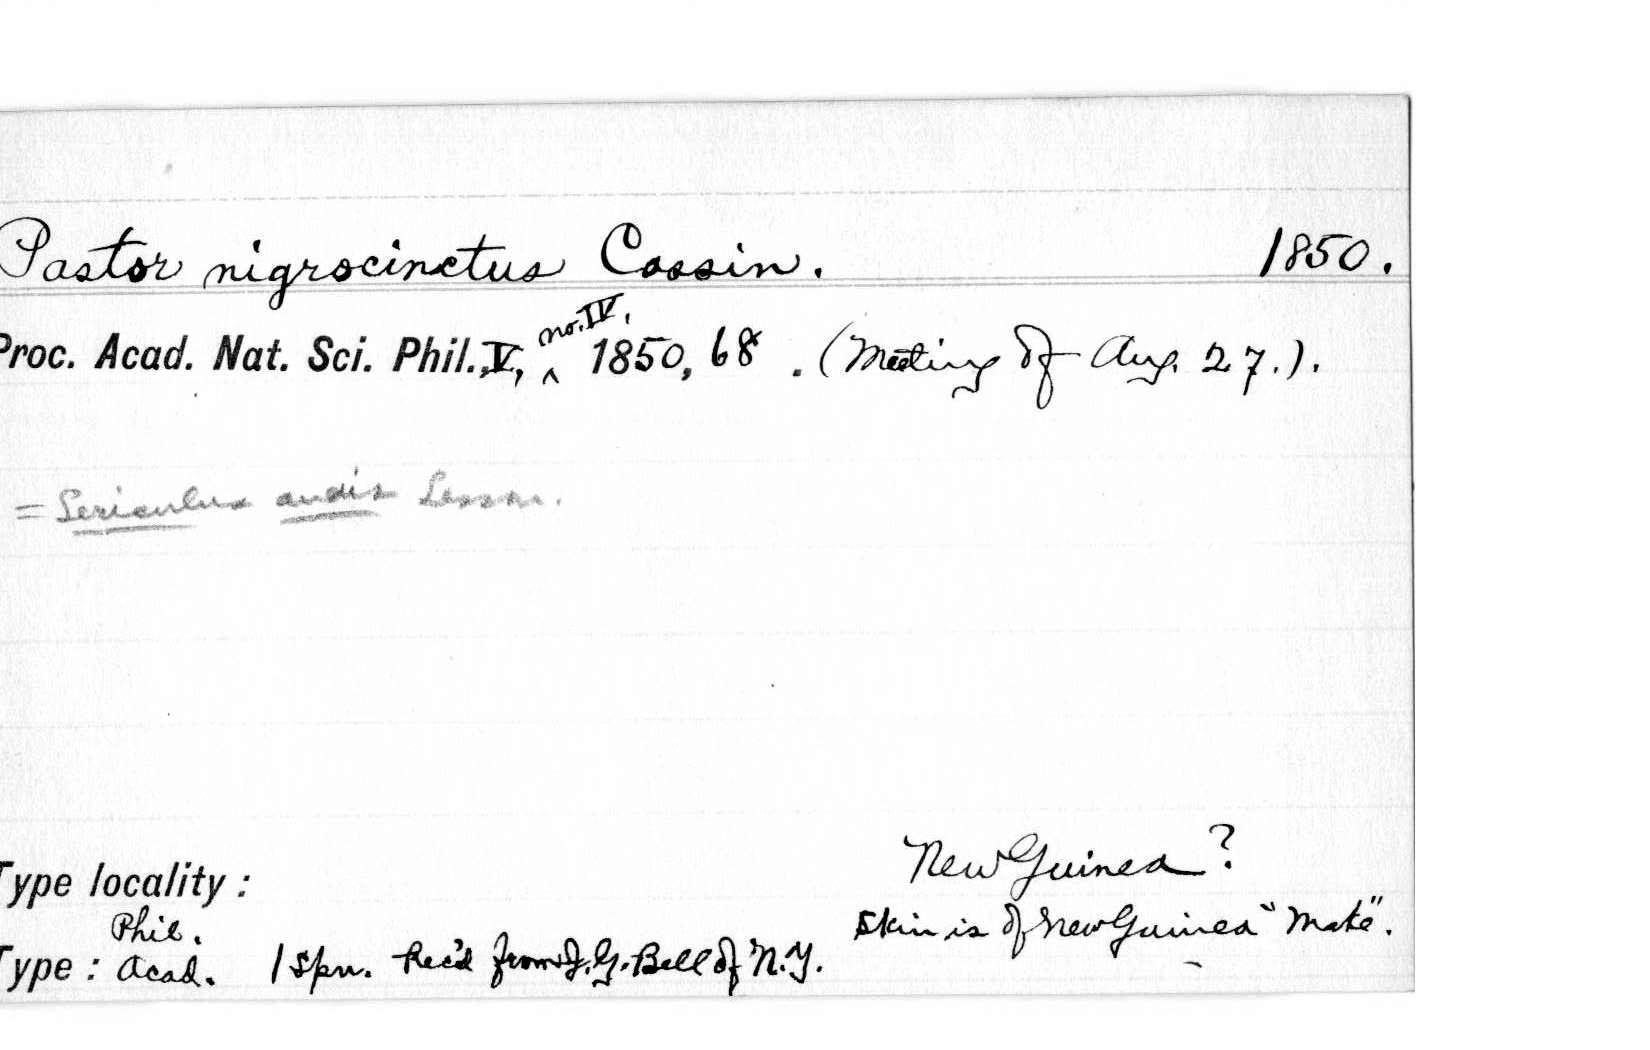 Pastor nigrocinctus Cassin. 1850.
Proc. Acad. Nat. Sci. Phil., V, no. IV, 1850, 68. (Meeting of Aug. 27.).
= Sericulus Lesson.
New Guinea?
Type locality:
Skin is of New Guinea "Make".
Phil.
Type: Acad. 1 spn. Rec'd from J. G. Bell of N.Y.